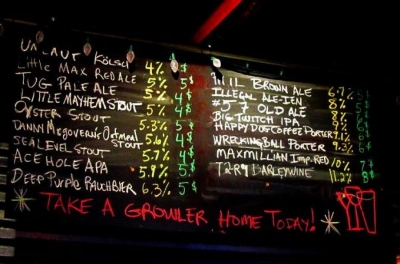 Umlaut Kölsch 4% 5$
Little Max Red Ale 5% 5$
Tug Pale Ale 5% 4$
Little Mayhem Stout 5% 4$
Oyster Stout 5.3% 5$
Dann Megovernk Oatmeal Stout 5% 5$
Sea Level Stout 5.7% 4$
Ace Hole APA 5.9% 5$
Deep Purple Rauchbier 6.3% 5$
Brown Ale 6.7%
Illegal Ale-ien 8%
#57 Old Ale
Big Twitch IPA
Happy Dog Coffee Porter
Wrecking Ball Porter 9.3%
Maxmillian Imp. Red 10.7%
Barleywine 11.2% 8$
Take a Growler Home Today!